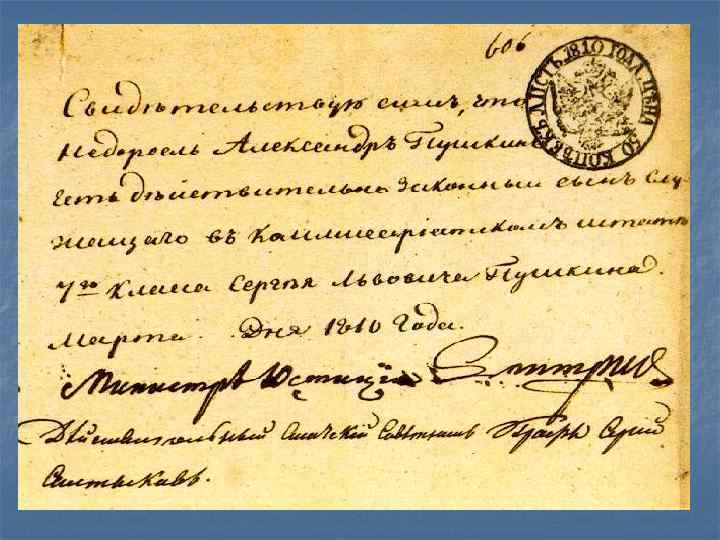 606
ЛИСТЪ 1810 ГОДА. ЦѢНА 50 КОПѢЕКЪ
Свидѣтельствую симъ, что
Недоросль Александръ Пушкинъ
Есть дѣйствительно Законный сынъ Слу-
жащаго въ Каммисерiатскомъ штатѣ
7го класа Сергѣя Львовича Пушкина.
Марта . Дня 1810 Года.
Министръ Юстицiи Дмитрiев
Дѣйствительный Статскiй Совѣтникъ Графъ Сергiй
Салтыковъ.